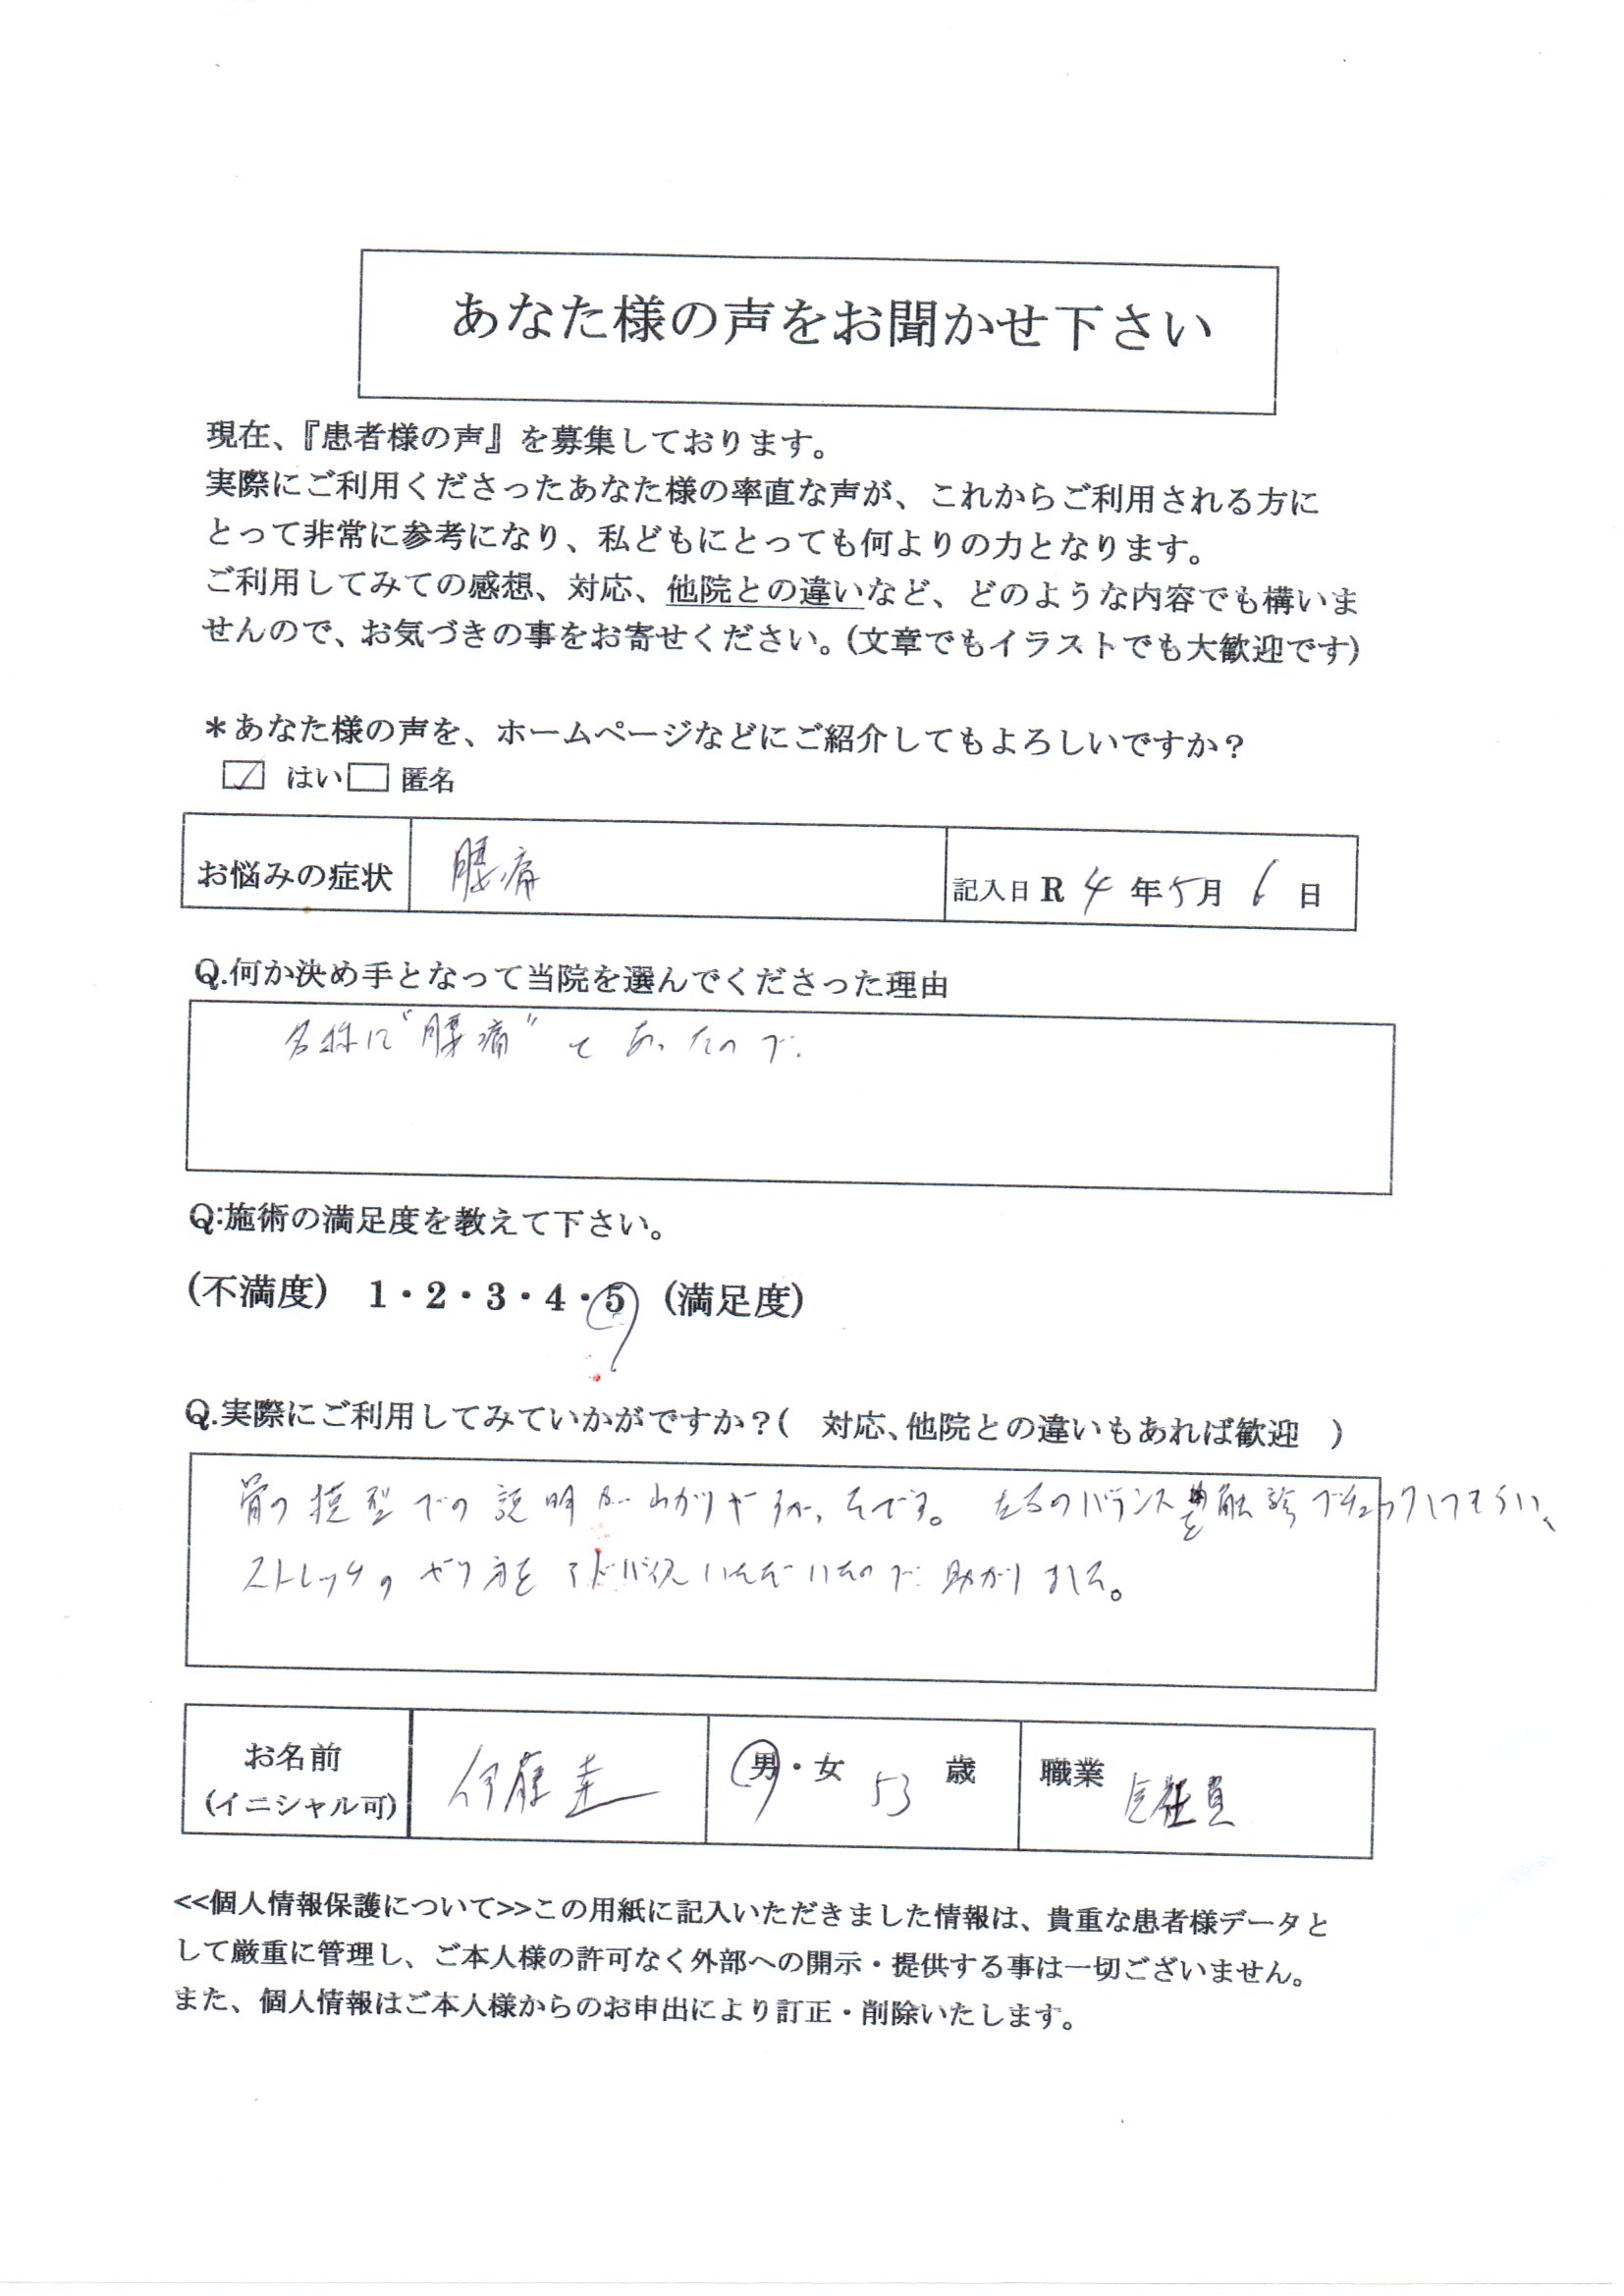 あなた様の声をお聞かせ下さい
現在、『患者様の声』を募集しております。
実際にご利用くださったあなた様の率直な声が、これからご利用される方に
とって非常に参考になり、私どもにとっても何よりの力となります。
ご利用してみての感想、対応、他院との違いなど、どのような内容でも構いま
せんので、お気づきの事をお寄せください。(文章でもイラストでも大歓迎です)
＊あなた様の声を、ホームページなどにご紹介してもよろしいですか？
はい 匿名
お悩みの症状 腰痛 記入日 R 4 年 5 月 6 日
Q.何か決め手となって当院を選んでくださった理由
名称に"腰痛"とあったので.
Q:施術の満足度を教えて下さい。
(不満度) 1・2・3・4・5 (満足度)
Q.実際にご利用してみていかがですか？( 対応、他院との違いもあれば歓迎 )
骨の模型での説明がわかりやすかったです。左右のバランスを触診でチェックしてもらい、
ストレッチのやり方をアドバイスいただいたので助かりました。
お名前 伊藤 男・女 53 歳 職業 会社員
(イニシャル可)
<<個人情報保護について>>この用紙に記入いただきました情報は、貴重な患者様データと
して厳重に管理し、ご本人様の許可なく外部への開示・提供する事は一切ございません。
また、個人情報はご本人様からのお申出により訂正・削除いたします。